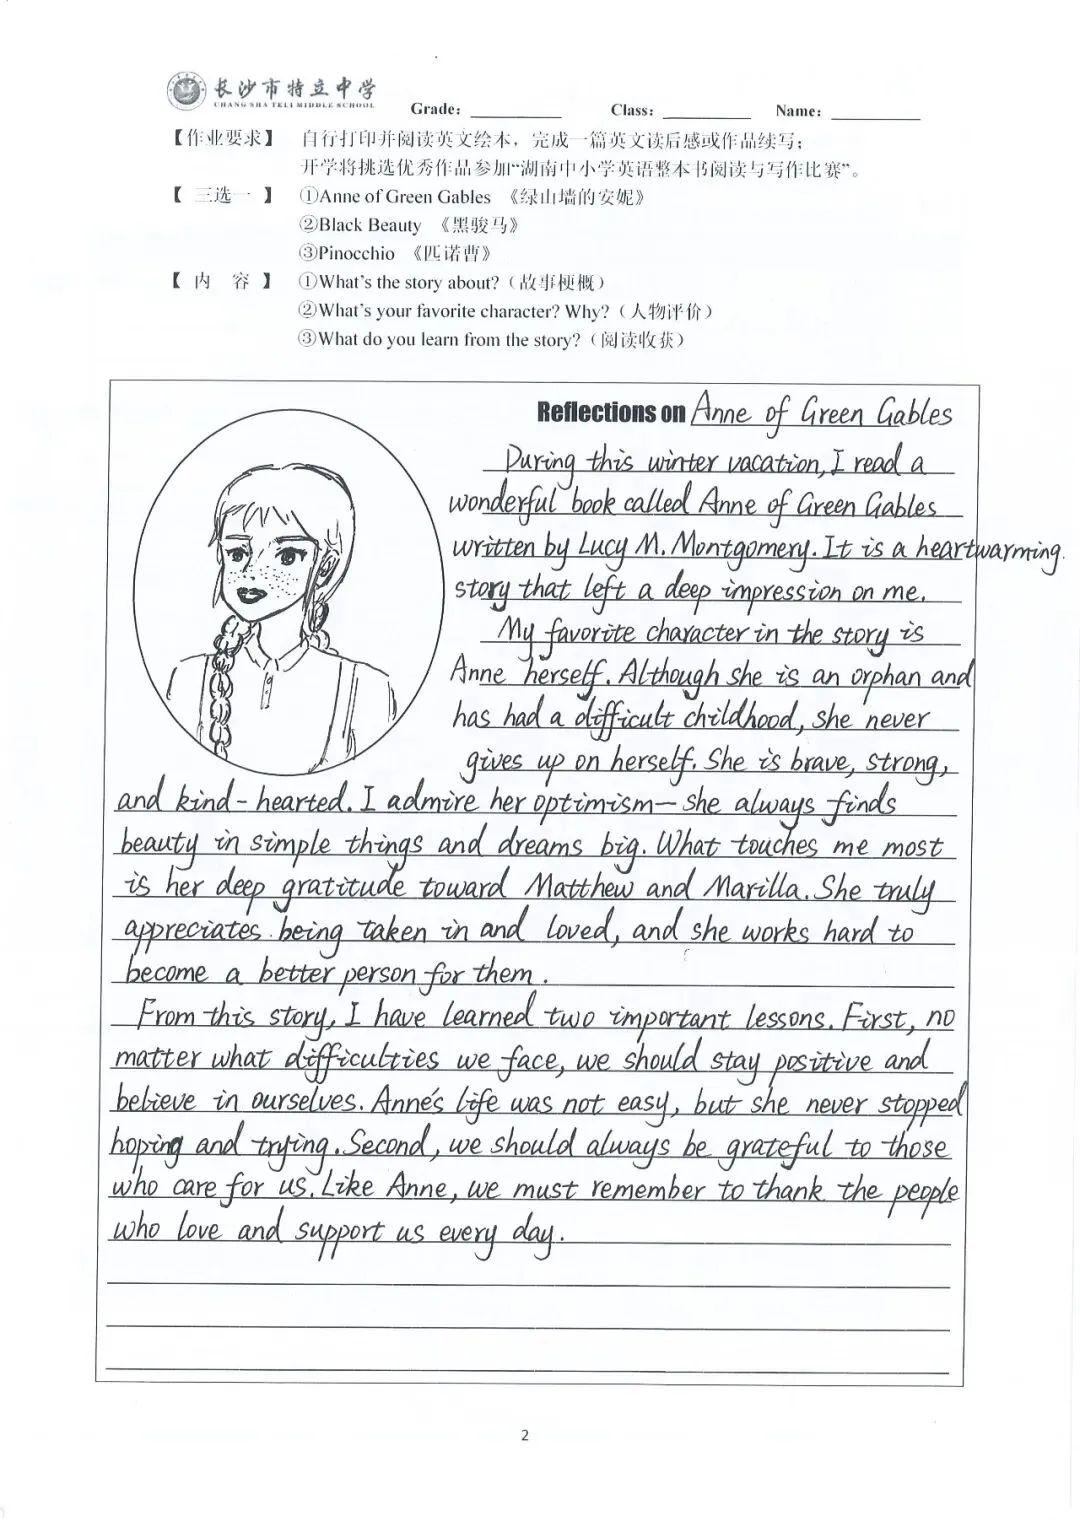 长沙市特立中学
CHANG SHA TELI MIDDLE SCHOOL
Grade: Class: Name:
【作业要求】 自行打印并阅读英文绘本，完成一篇英文读后感或作品续写；
开学将挑选优秀作品参加“湖南中小学英语整本书阅读与写作比赛”。
【 三选一 】 ①Anne of Green Gables 《绿山墙的安妮》
②Black Beauty 《黑骏马》
③Pinocchio 《匹诺曹》
【 内 容 】 ①What's the story about?（故事梗概）
②What's your favorite character? Why?（人物评价）
③What do you learn from the story?（阅读收获）
Reflections on Anne of Green Gables
During this winter vacation, I read a
wonderful book called Anne of Green Gables
written by Lucy M. Montgomery. It is a heartwarming
story that left a deep impression on me.
My favorite character in the story is
Anne herself. Although she is an orphan and
has had a difficult childhood, she never
gives up on herself. She is brave, strong,
and kind-hearted. I admire her optimism— she always finds
beauty in simple things and dreams big. What touches me most
is her deep gratitude toward Matthew and Marilla. She truly
appreciates being taken in and loved, and she works hard to
become a better person for them.
From this story, I have learned two important lessons. First, no
matter what difficulties we face, we should stay positive and
believe in ourselves. Anne's life was not easy, but she never stopped
hoping and trying. Second, we should always be grateful to those
who care for us. Like Anne, we must remember to thank the people
who love and support us every day.
2